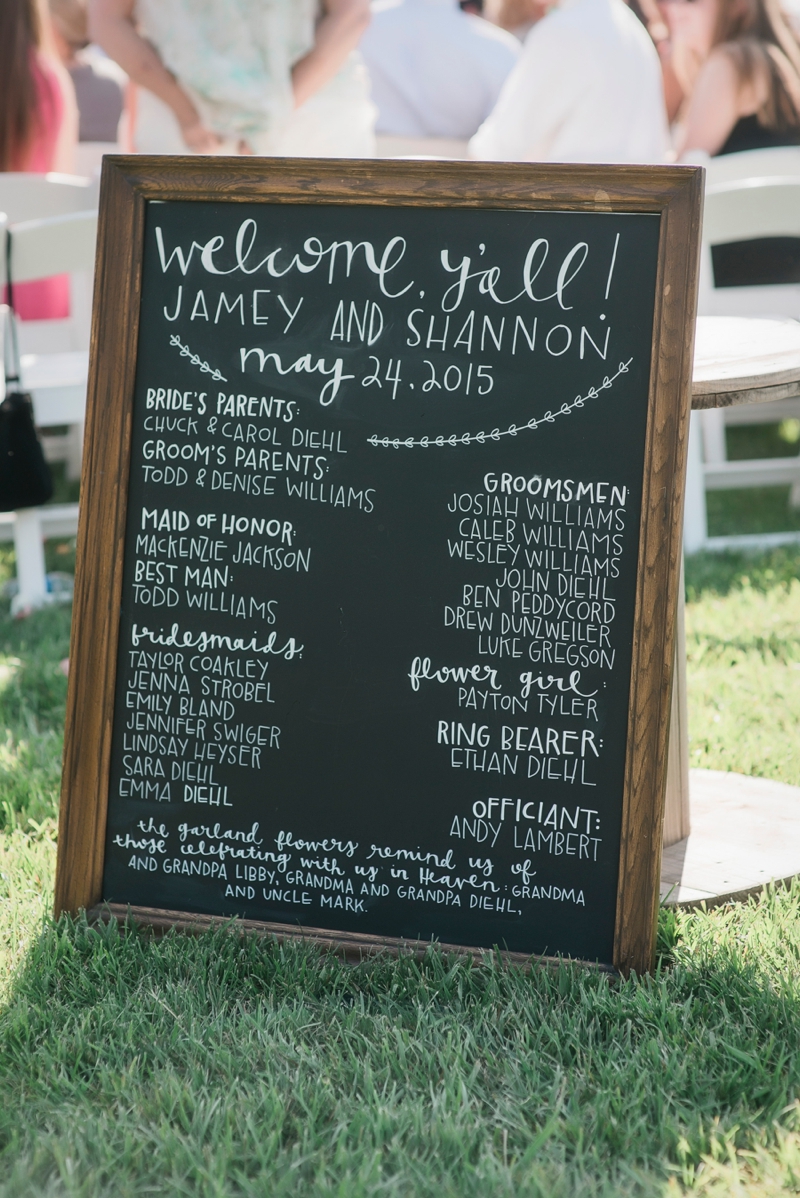 welcome, y'all!
JAMEY AND SHANNON
may 24, 2015
BRIDE'S PARENTS:
CHUCK & CAROL DIEHL
GROOM'S PARENTS:
TODD & DENISE WILLIAMS
MAID OF HONOR:
MACKENZIE JACKSON
BEST MAN:
TODD WILLIAMS
bridesmaids:
TAYLOR COAKLEY
JENNA STROBEL
EMILY BLAND
JENNIFER SWIGER
LINDSAY HEYSER
SARA DIEHL
EMMA DIEHL
GROOMSMEN:
JOSIAH WILLIAMS
CALEB WILLIAMS
WESLEY WILLIAMS
JOHN DIEHL
BEN PEDDYCORD
DREW DUNZWEILER
LUKE GREGSON
flower girl:
PAYTON TYLER
RING BEARER:
ETHAN DIEHL
OFFICIANT:
ANDY LAMBERT
the garland flowers remind us of
those celebrating with us in Heaven: GRANDMA
AND GRANDPA LIBBY, GRANDMA AND GRANDPA DIEHL,
AND UNCLE MARK.